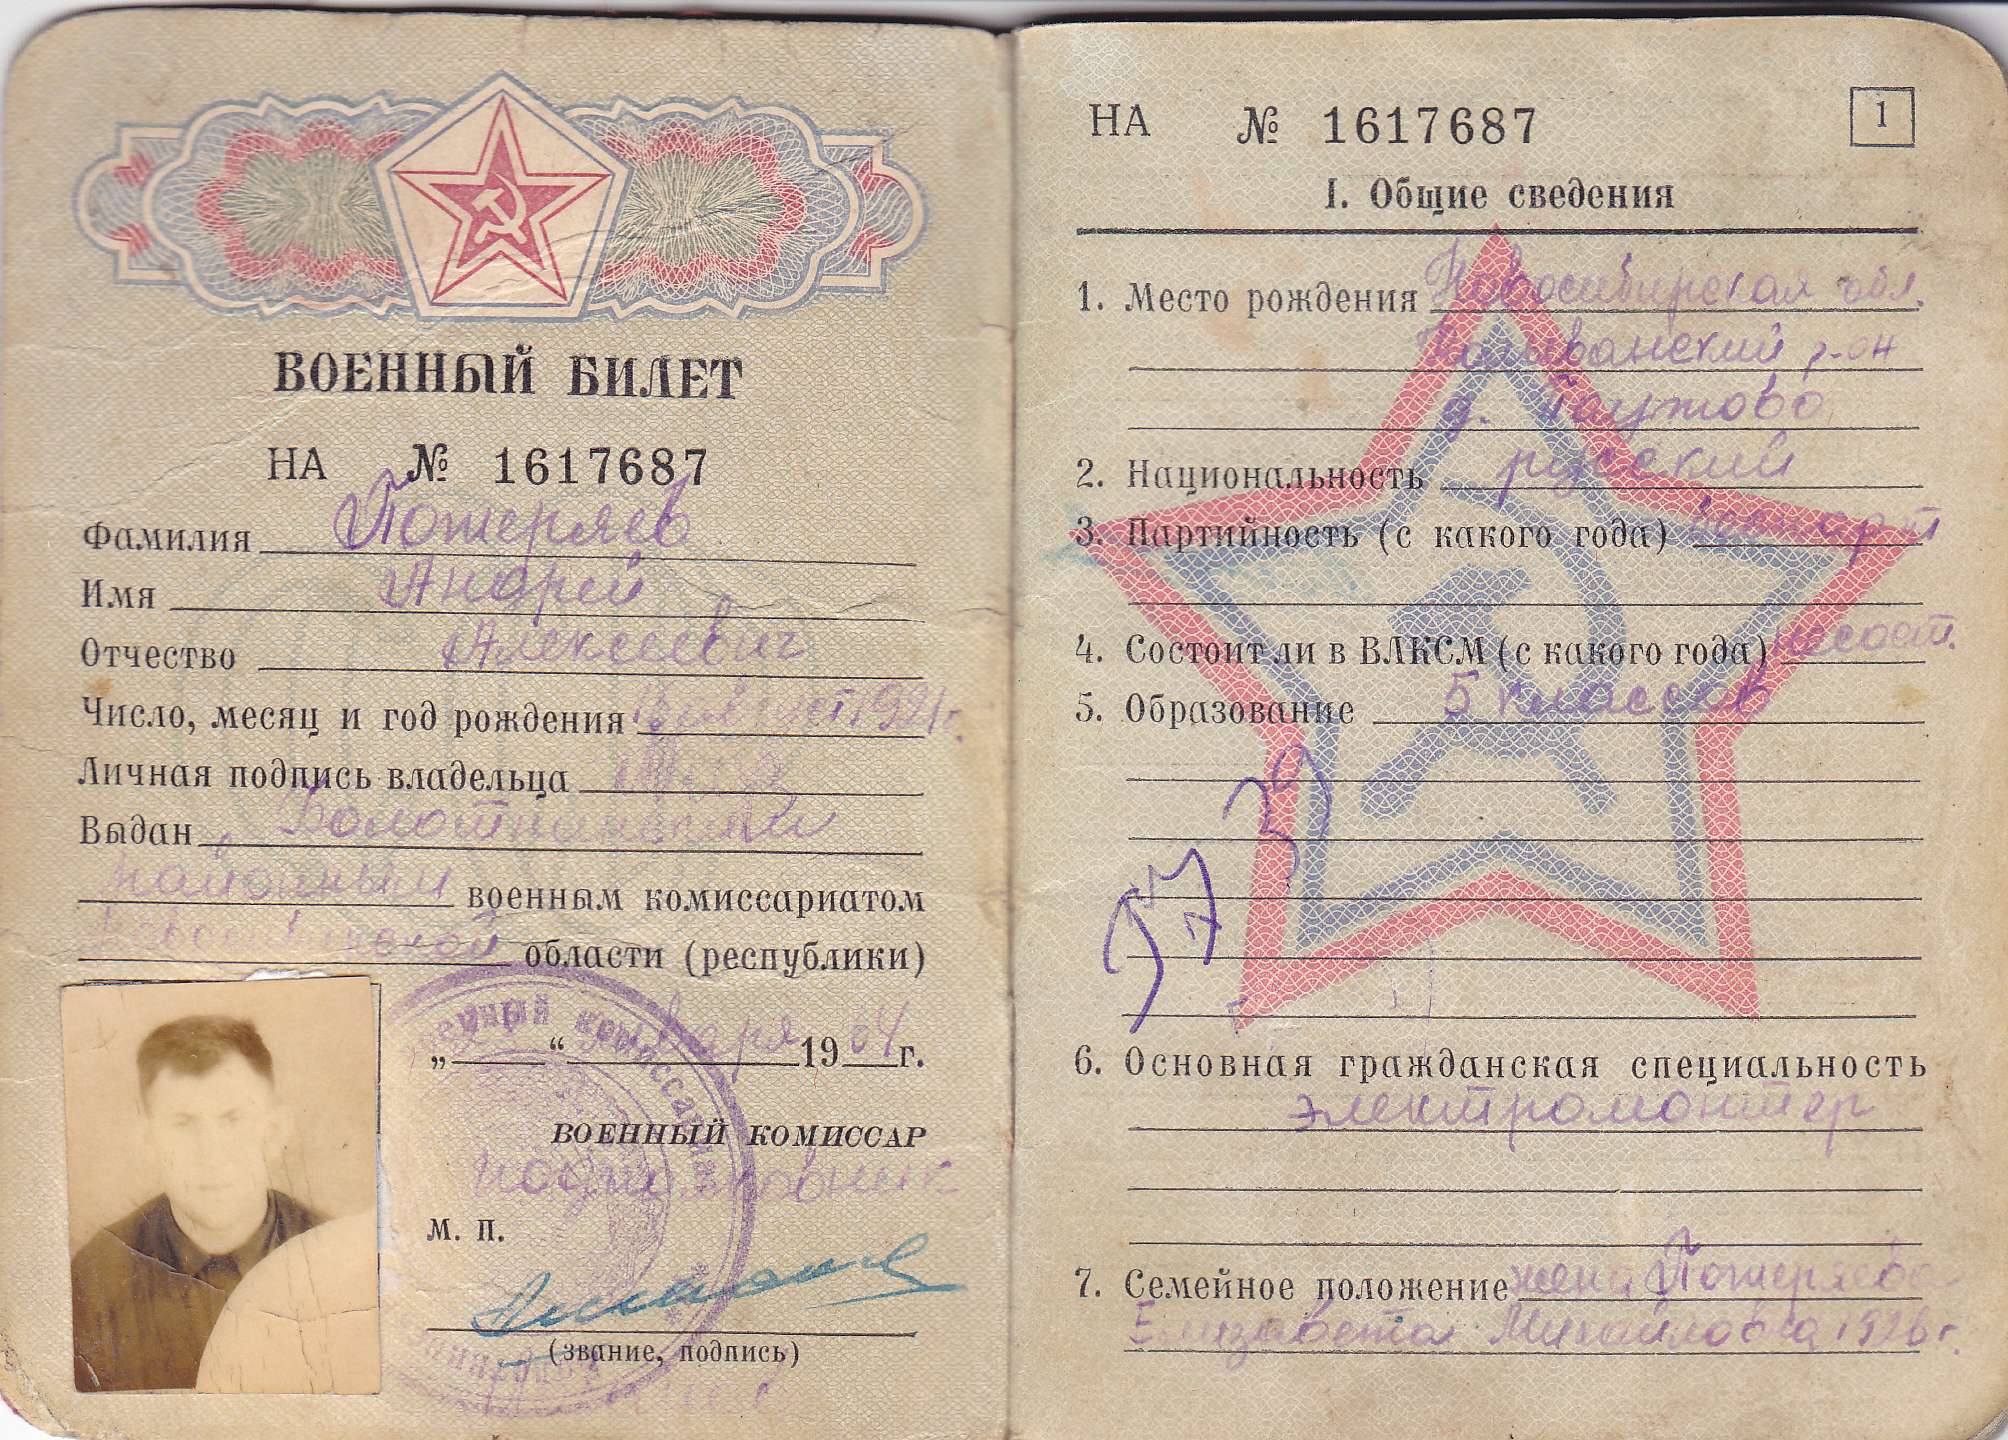 ВОЕННЫЙ БИЛЕТ
НА № 1617687
Фамилия Пожеряев
Имя Андрей
Отчество Алексеевич
Число, месяц и год рождения август 1921 г.
Личная подпись владельца
Выдан Болотнинским
районным военным комиссариатом
Новосибирской области (республики)
„ “ января 19 64 г.
ВОЕННЫЙ КОМИССАР
подполковник
М. П.
(звание, подпись)
НА № 1617687
1
I. Общие сведения
1. Место рождения Новосибирская обл.
Колыванский р-он
д. Паутово
2. Национальность русский
3. Партийность (с какого года)
4. Состоит ли в ВЛКСМ (с какого года) не сост.
5. Образование 5 классов
6. Основная гражданская специальность
электромонтер
7. Семейное положение жена Пожеряева
Елизавета Михайловна 1926 г.